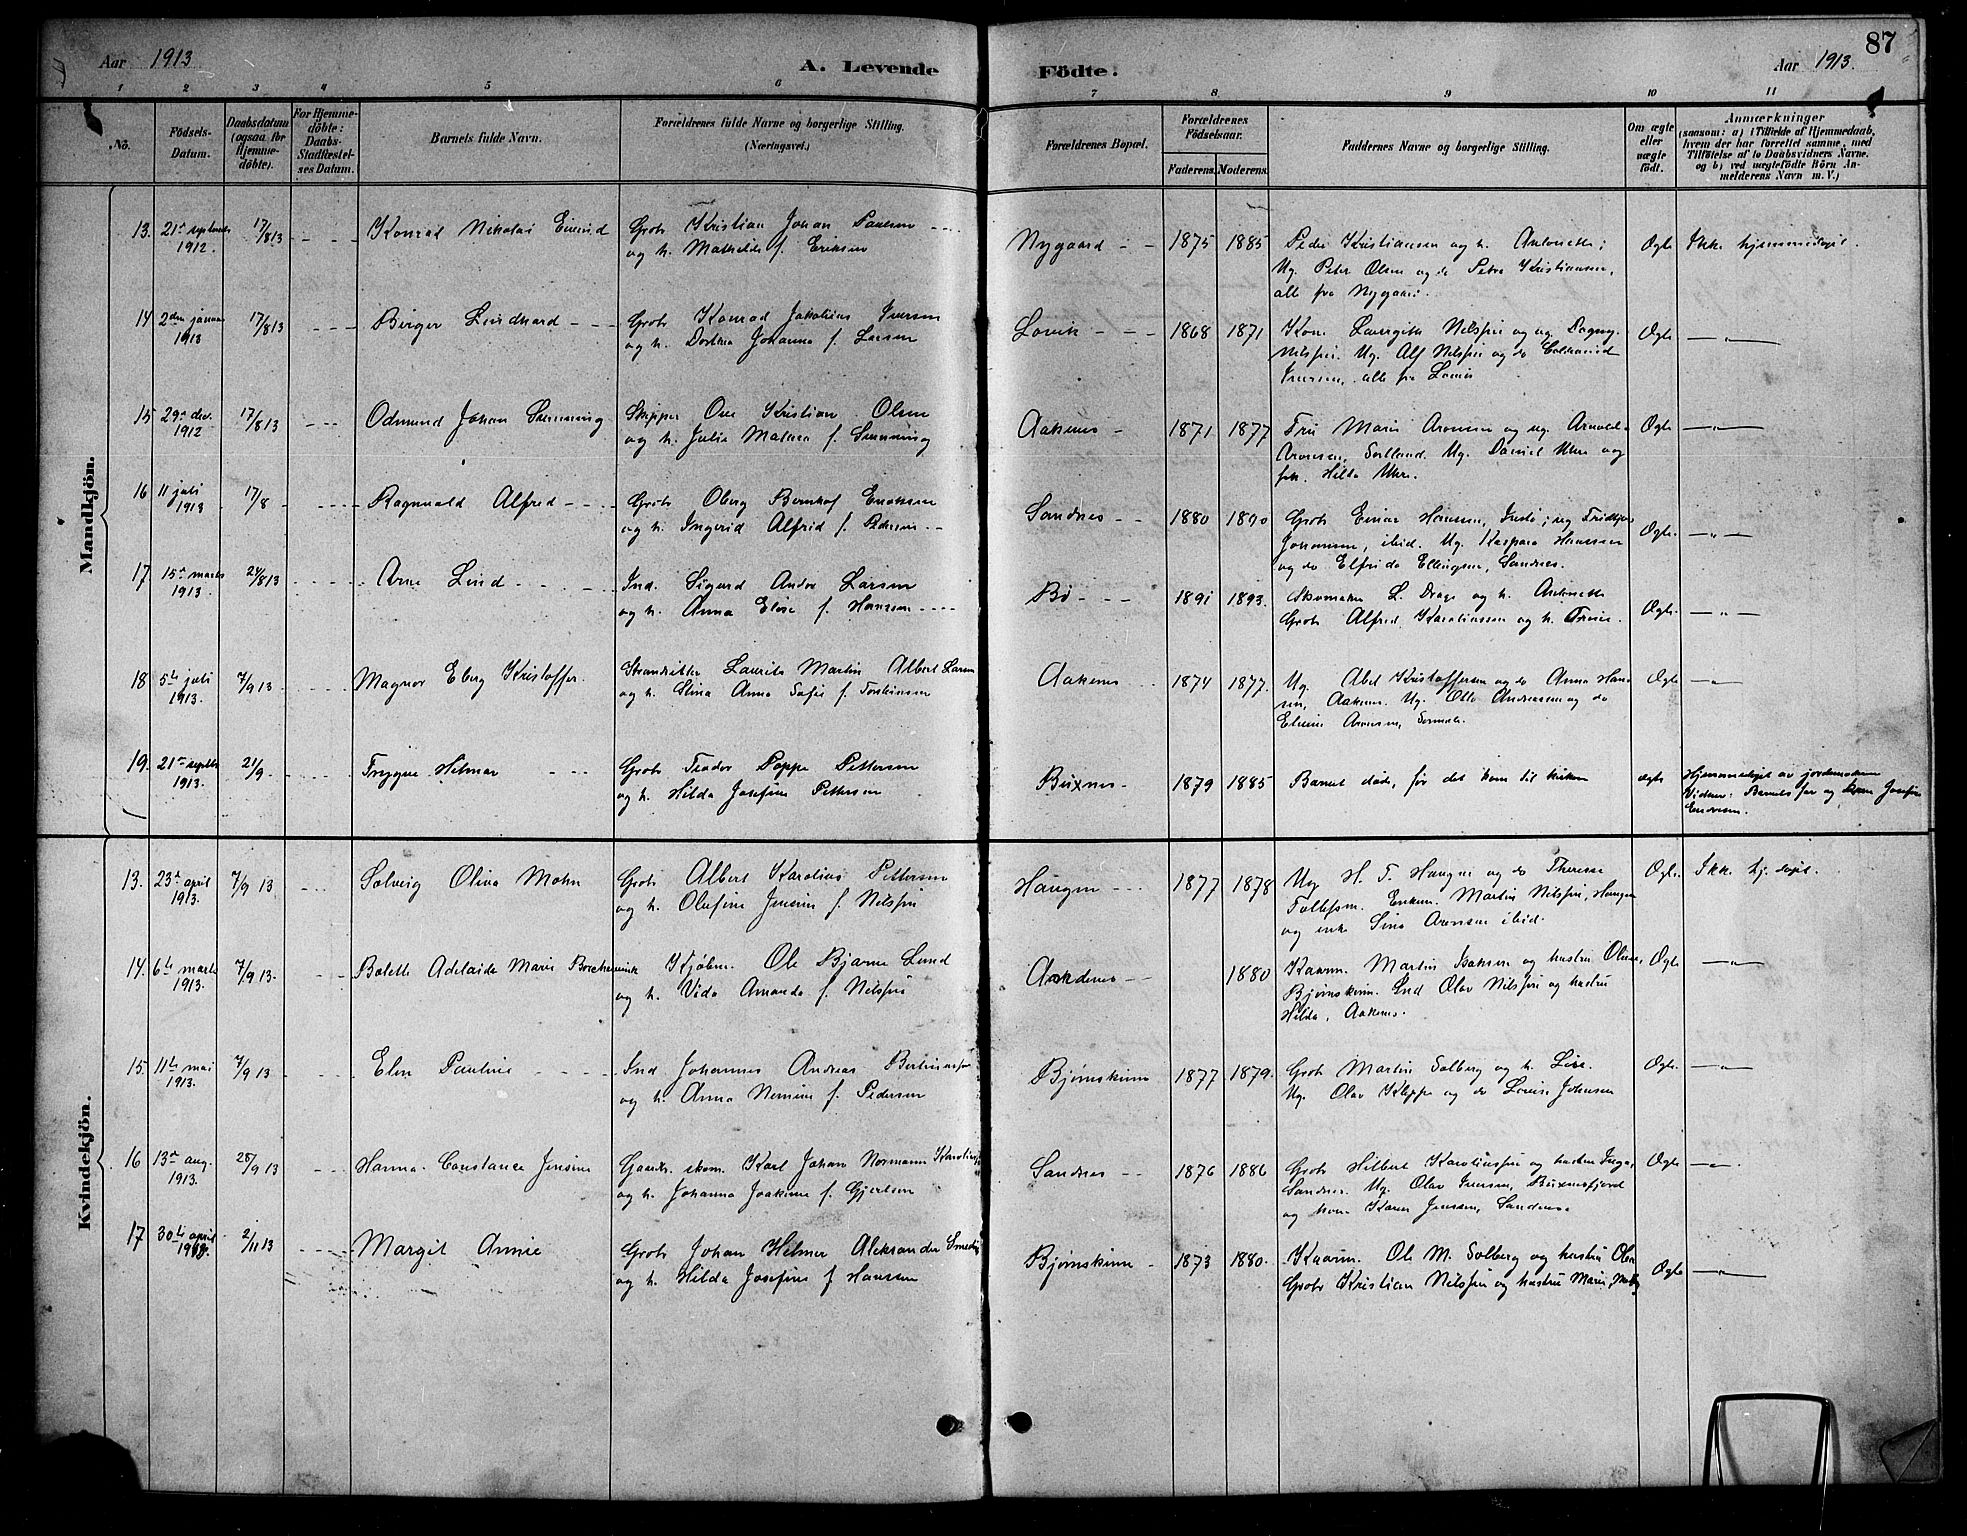 87
Aar 1913
A. Levende Födte.
Aar 1913.
1 2 3 4 5 6 7 8 9 10 11
No.
Födsels-
Datum.
Daabsdatum
(ogsaa for
Hjemme-
döbte).
For Hjemme-
döbte:
Daabs-
Stadfæstel-
ses Datum.
Barnets fulde Navn.
Forældrenes fulde Navne og borgerlige Stilling.
(Næringsvei.)
Forældrenes Bopæl.
Forældrenes
Födselsaar.
Faderens. Moderens.
Faddernes Navne og borgerlige Stilling.
Om ægte
eller
uægte
født.
Anmærkninger
(saasom: a) i Tilfælde af Hjemmedaab,
hvem der har forrettet samme, med
Tilföielse af to Daabsvidners Navne.
og b) ved uægtefödte Börn An-
melderens Navn m. V.)
Mandkjön.
13. 21de september 1912 17/8 13 Konrad Nikolai Eivind
Grbr Kristian Johan Paulsen
og h. Mathilde f. Eriksen
Nygaard 1875 1885
Peder Kristiansen og h. Antonette;
Ug. Peter Olsen og do Petra Kristiansen,
alle fra Nygaard.
Ægte Ikke hjemmedøpt.
14 2den januar 1913 17/8 13 Birger Lindhard
Grbr Konrad Jakobinus Iversen
og h. Dortea Johanna f. Larsen
Lovik 1868 1871
Kone Lavergith Nilssen og ug. Dagny
Nilssen. Ug. Alf Nilssen og do
Iversen, alle fra Lovik
Ægte — " —
15 29de dec. 1912 17/8 13 Odmund Johan Svenning
Skipper Ove Kristian Olsen
og h. Julie Matea f. Svenning
Aaknes 1871 1877
Fru Marie Aronsen og ug. Arnold
Aronsen, Sortland. Ug. Daniel Uhre og
frk. Hilda Uhre.
Ægte — " —
16 11 juli 1913 17/8 Ragnvald Alfred
Grbr Oberg Bernhof Enoksen
og h. Ingerid Alfrid f. Pedersen
Sandnes 1880 1890
Grbr Einar Hanssen, ; ug Fridtjof
Johansen, ibid. Ug. Kaspara Hanssen
og do Elfrida Ellingsen, Sandnes.
Ægte — " —
17. 15de marts 1913. 24/8 13 Arne Lind
Ind. Sigurd Andor Larsen
og h. Anna Elise f. Hanssen
Bø 1891 1893.
Skomaker L. Drage og h. Antonette
Grbr Alfred Karoliussen og h. Trine.
Ægte. — " —
18 5te juli 1913. 7/9 13 Magnor Eberg Kristoffer.
Strandsitter Laurits Martin Albert Larsen
og h. Stina Anna Sofie f. Torkinsen
Aaknes 1874 1877.
Ug. Abel Kristoffersen og do Anna Han-
sen, Aaknes. Ug. Otto Andreassen og do
Aronsen,
Ægte — " —
19. 21de septbr 1913. 21/9 Trygve Helmer
Grbr Teodor Poppe Pettersen
og h. Hilda Josefine Pettersen
Buxnes 1879 1885
Barnet døde, før det kom til kirken
ægte Hjemmedøpt av jordemoderen
Vidner: Barnets far og Josefine
Kvindekjön.
13. 23de april 1913. 7/9 13 Solveig Oliva Mohn
Grbr Albert Karolius Pettersen
og h. Olufine Jensine f. Nilssen
Haugen 1877 1878
Ug H. T. Haugen og do Therese
Tollefsen. Enkem. Martin Nilssen, Haugen
og enke Sina Aronsen ibid.
Ægte. Ikk. hj. døpt.
14. 6te marts 1913. 7/9 13. Bolette Adelaide Marie
Kjøbm. Ole Bjarne Lund
og h. Vida Amanda f. Nilssen
Aandenes 1880
Kaarm. Martin Isaksen og hustru Oline,
Bjørnskinn. Ind Olav Nilssen og hustru
Hilda, Aaknes.
Ægte — " —
15. 11te mai 1913. 7/9 13. Elen Pauline
Ind Johannes Andreas Bertheussen
og h. Anna Nensine f. Pedersen
Bjørnskinn 1877 1879.
Grbr Martin Solberg og h. Lise.
Ug. Olav Kleppe og do Louise Johnsen
Ægte. — " —
16 13de aug. 1913. 28/9 13 Hanna Constance Jensine
Gaardbr. skom. Karl Johan Normann Karoliussen
og h. Johanna Joakime f. Gjertsen
Sandnes 1876 1886
Grbr Hilbert Karoliussen og hustru Inga,
Sandnes. Ug. Olav Iversen, Buxnesfjord
og kone Karen Jensen, Sandnes
Ægte — " —
17 30te april 1913. 2/11 13 Margit Annie
Grbr Johan Helmer Aleksander
og h. Hilda Josefine f Hanssen
Bjørnskinn 1873 1880.
Kaarm. Ole M. Solberg og hustru
Grbr Kristian Nilssen og hustru Marie,
Ægte — " —